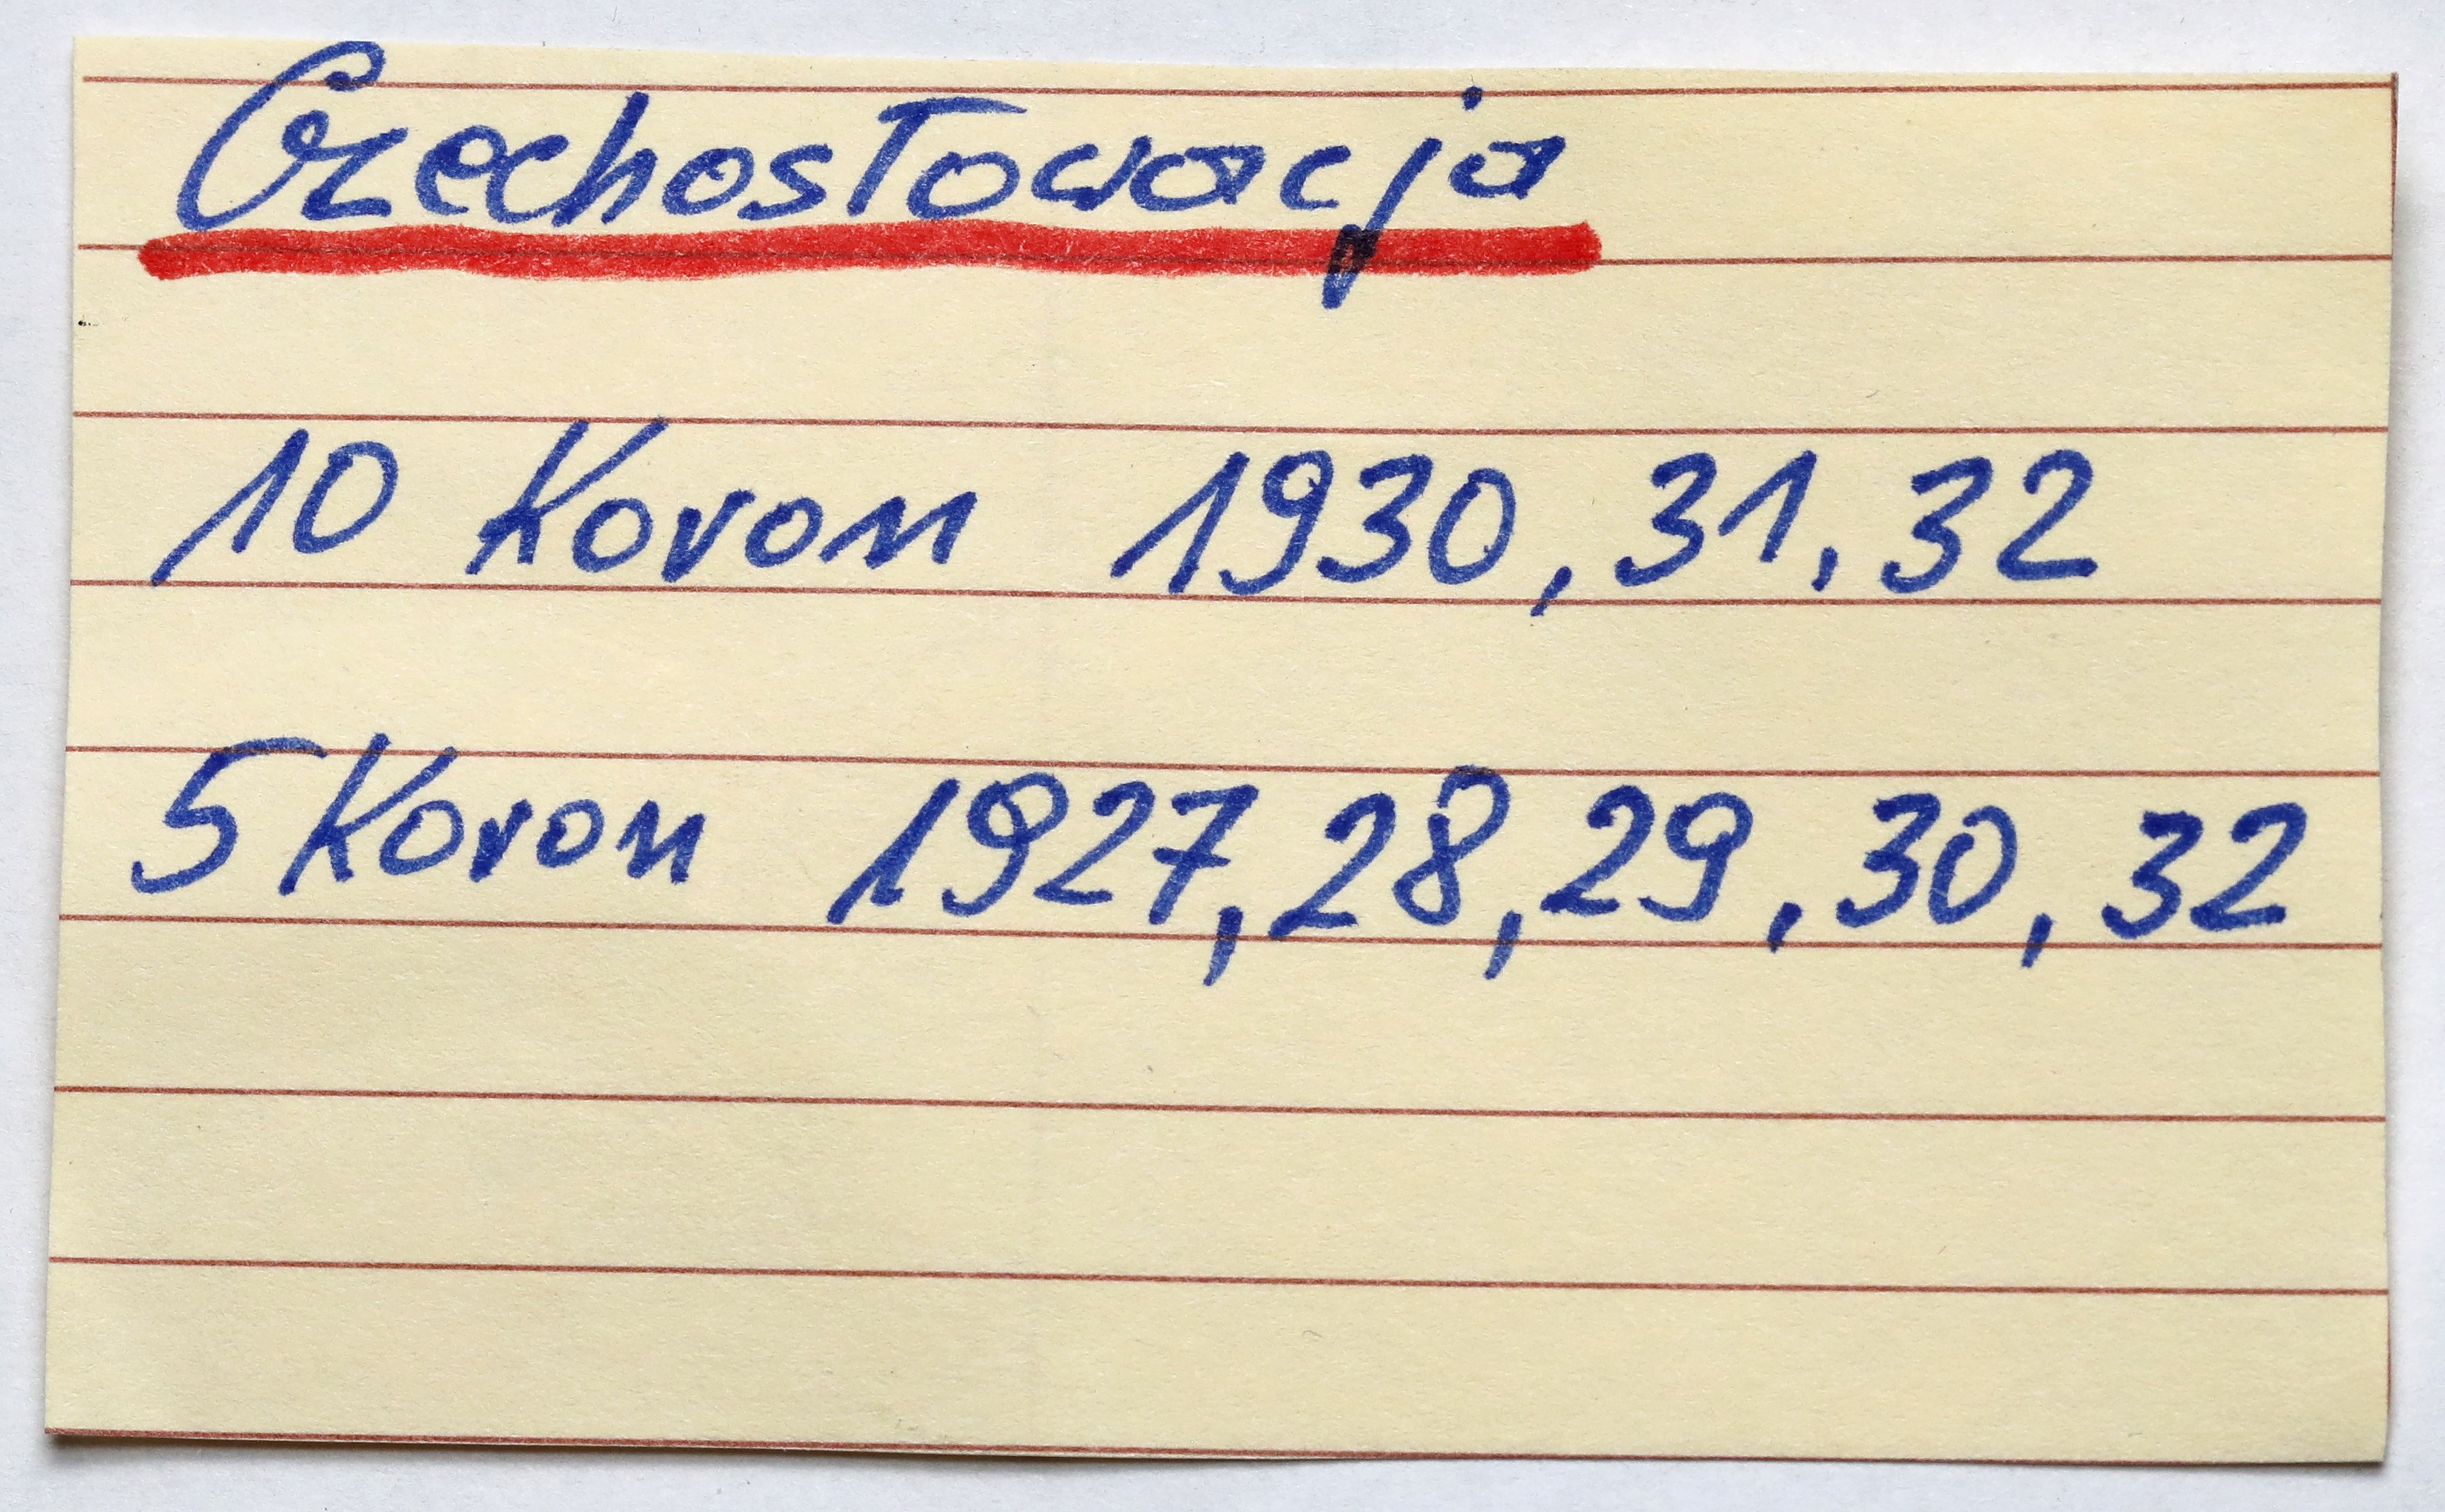 Czechosłowacja
10 Koron 1930, 31, 32
5 Koron 1927, 28, 29, 30, 32